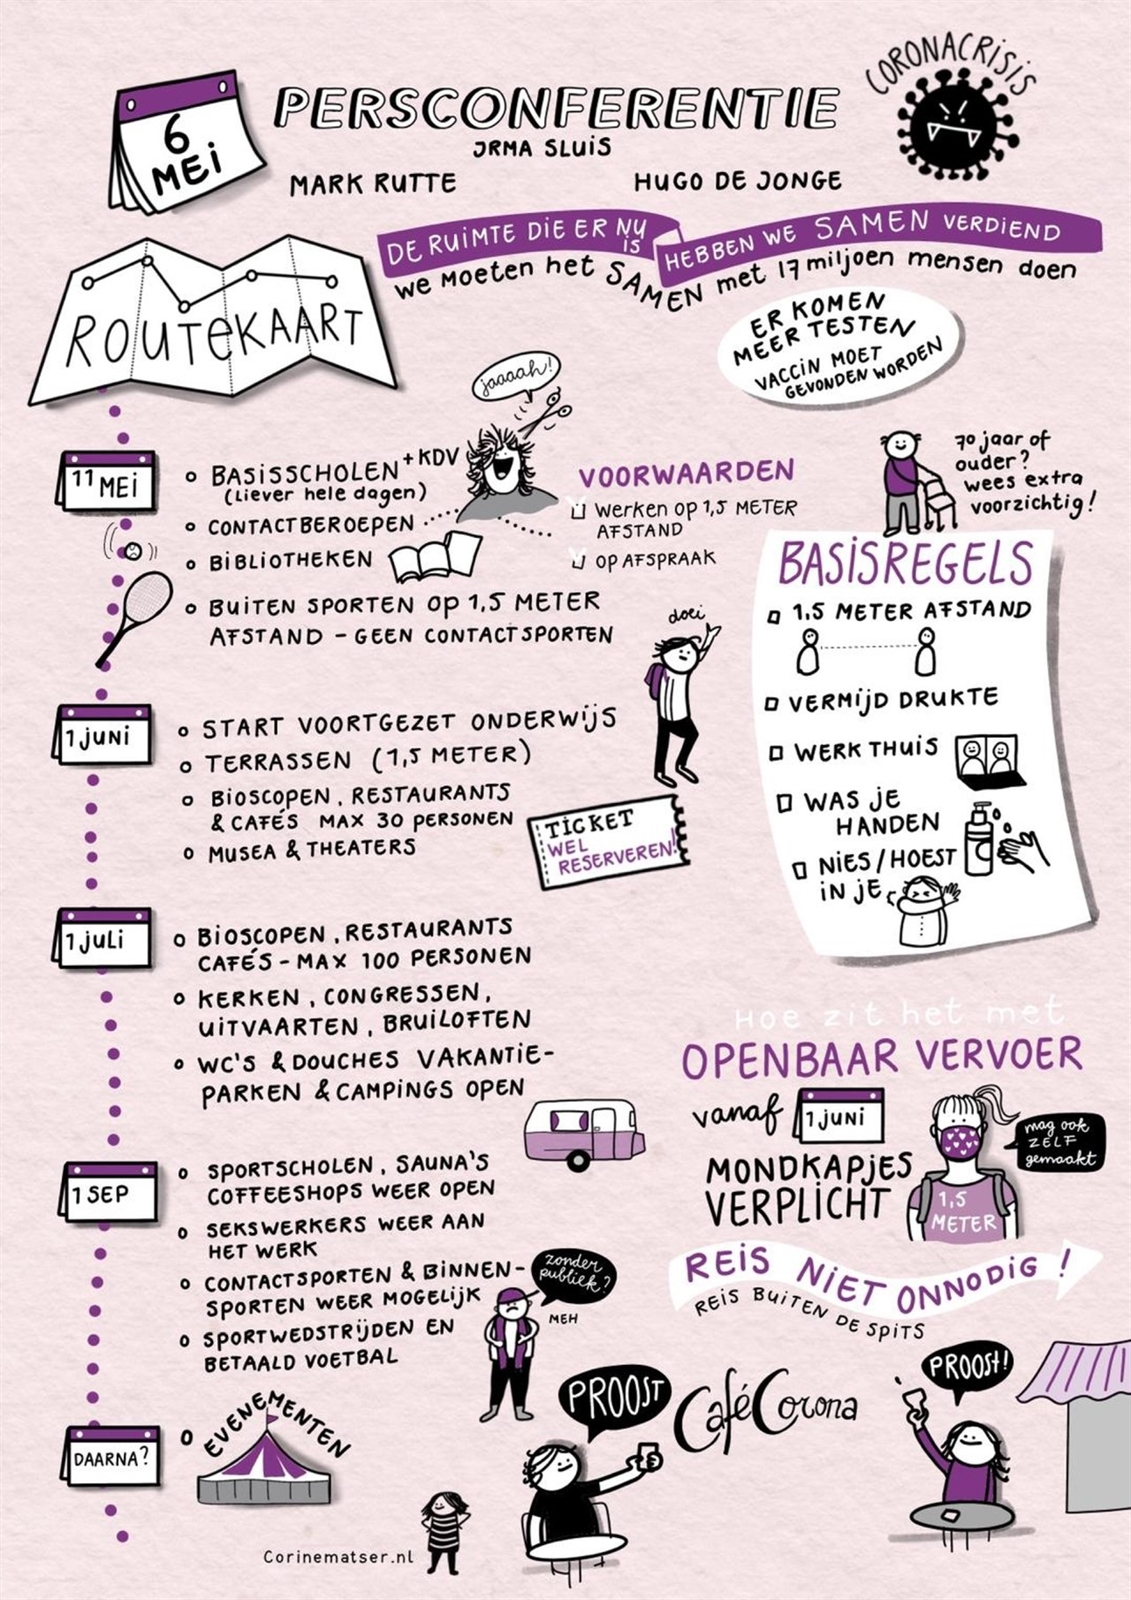 CORONACRISIS
6 MEi
PERSCONFERENTIE
IRMA SLUIS
MARK RUTTE
HUGO DE JONGE
DE RUIMTE DIE ER NU IS
HEBBEN WE SAMEN VERDIEND
we moeten het SAMEN met 17 miljoen mensen doen
ROUTEKAART
ER KOMEN
MEER TESTEN
VACCIN MOET
GEVONDEN WORDEN
jaaaah!
11 MEI
BASISSCHOLEN + KDV
(liever hele dagen)
CONTACTBEROEPEN
BIBLIOTHEKEN
BUITEN SPORTEN OP 1,5 METER
AFSTAND - GEEN CONTACTSPORTEN
VOORWAARDEN
Werken op 1,5 METER
AFSTAND
OP AFSPRAAK
70 jaar of
ouder?
wees extra
voorzichtig!
BASISREGELS
1,5 METER AFSTAND
VERMIJD DRUKTE
WERK THUIS
WAS JE
HANDEN
NIES/HOEST
IN JE
doei
1 JUNI
START VOORTGEZET ONDERWIJS
TERRASSEN (1,5 METER)
BIOSCOPEN, RESTAURANTS
& CAFÉS MAX 30 PERSONEN
MUSEA & THEATERS
TICKET
WEL
RESERVEREN!
1 JULI
BIOSCOPEN, RESTAURANTS
CAFÉS - MAX 100 PERSONEN
KERKEN, CONGRESSEN,
UITVAARTEN, BRUILOFTEN
WC'S & DOUCHES VAKANTIE-
PARKEN & CAMPINGS OPEN
Hoe zit het met
OPENBAAR VERVOER
vanaf 1 JUNI
MONDKAPJES
VERPLICHT
mag ook
ZELF
gemaakt
1,5
METER
REIS NIET ONNODIG!
REIS BUITEN DE SPITS
1 SEP
SPORTSCHOLEN, SAUNA'S
COFFEESHOPS WEER OPEN
SEKSWERKERS WEER AAN
HET WERK
CONTACTSPORTEN & BINNEN-
SPORTEN WEER MOGELIJK
SPORTWEDSTRIJDEN EN
BETAALD VOETBAL
zonder
publiek?
MEH
DAARNA?
EVENEMENTEN
PROOST
Café Corona
PROOST!
Corinematser.nl